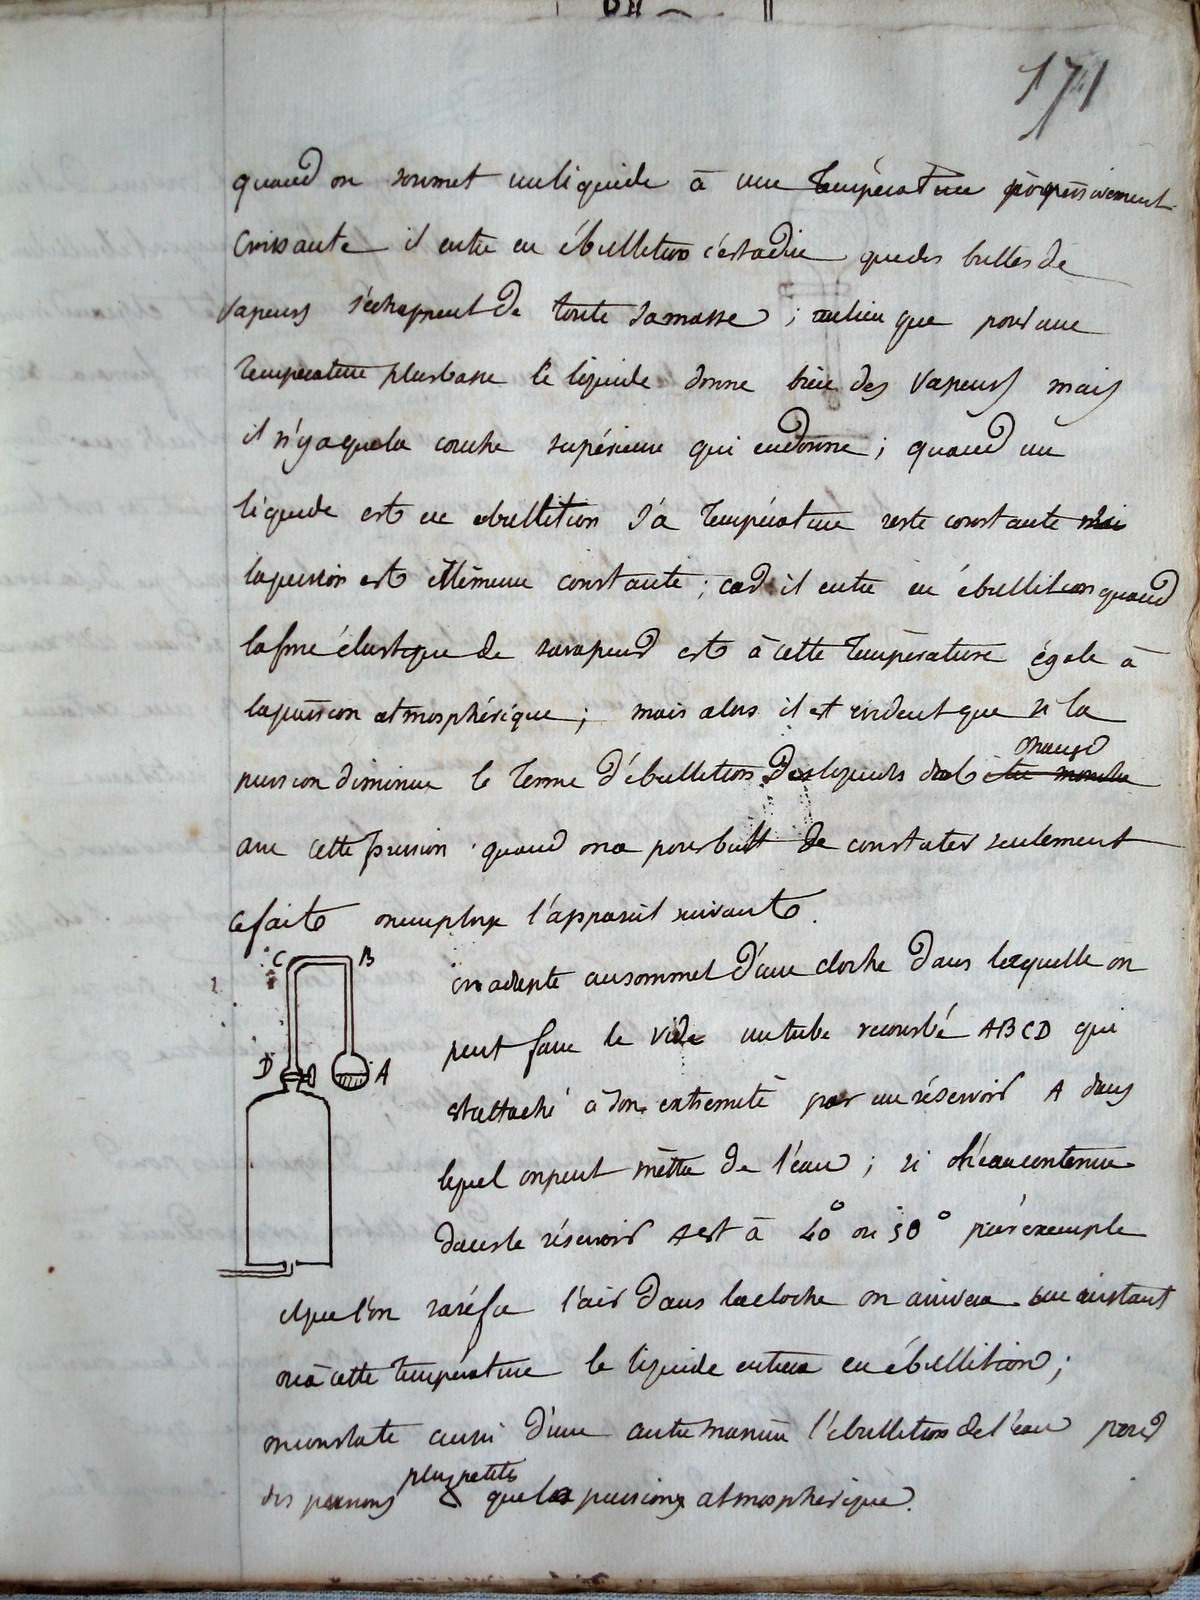 171
quand on soumet un liquide à une température progressivement
Croissante il entre en ébullition c'est a dire que des bulles de
vapeurs s'échappent de toute sa masse ; au lieu que pour une
température plus basse le liquide donne bien des vapeurs mais
il n'y a que la couche supérieure qui en donne ; quand un
liquide est en ebullition sa température reste constante
la pression est elle même constante ; cad il entre en ébullition quand
la force élastique de sa vapeur est à cette température égale à
la pression atmosphérique ; mais alors il est évident que si la
change
pression diminue le terme d'ébullition des liquides doit
avec cette pression . quand on a pour but de constater seulement
ce fait on emploie l'appareil suivant.
C B
on adapte au sommet d'une cloche dans laquelle on
peut faire le vide un tube recourbé ABCD qui
D A
est attaché à son extremité par un réservoir A dans
lequel on peut mettre de l'eau ; si l'eau contenue
dans le réservoir A est à 40° ou 50° par exemple
et que l'on raréfie l'air dans la cloche on arrivera a un instant
où à cette température le liquide entrera en ébullition ;
on constate aussi d'une autre manière l'ébullition de l'eau pour
plus petites
des pressions que la pression atmosphérique.